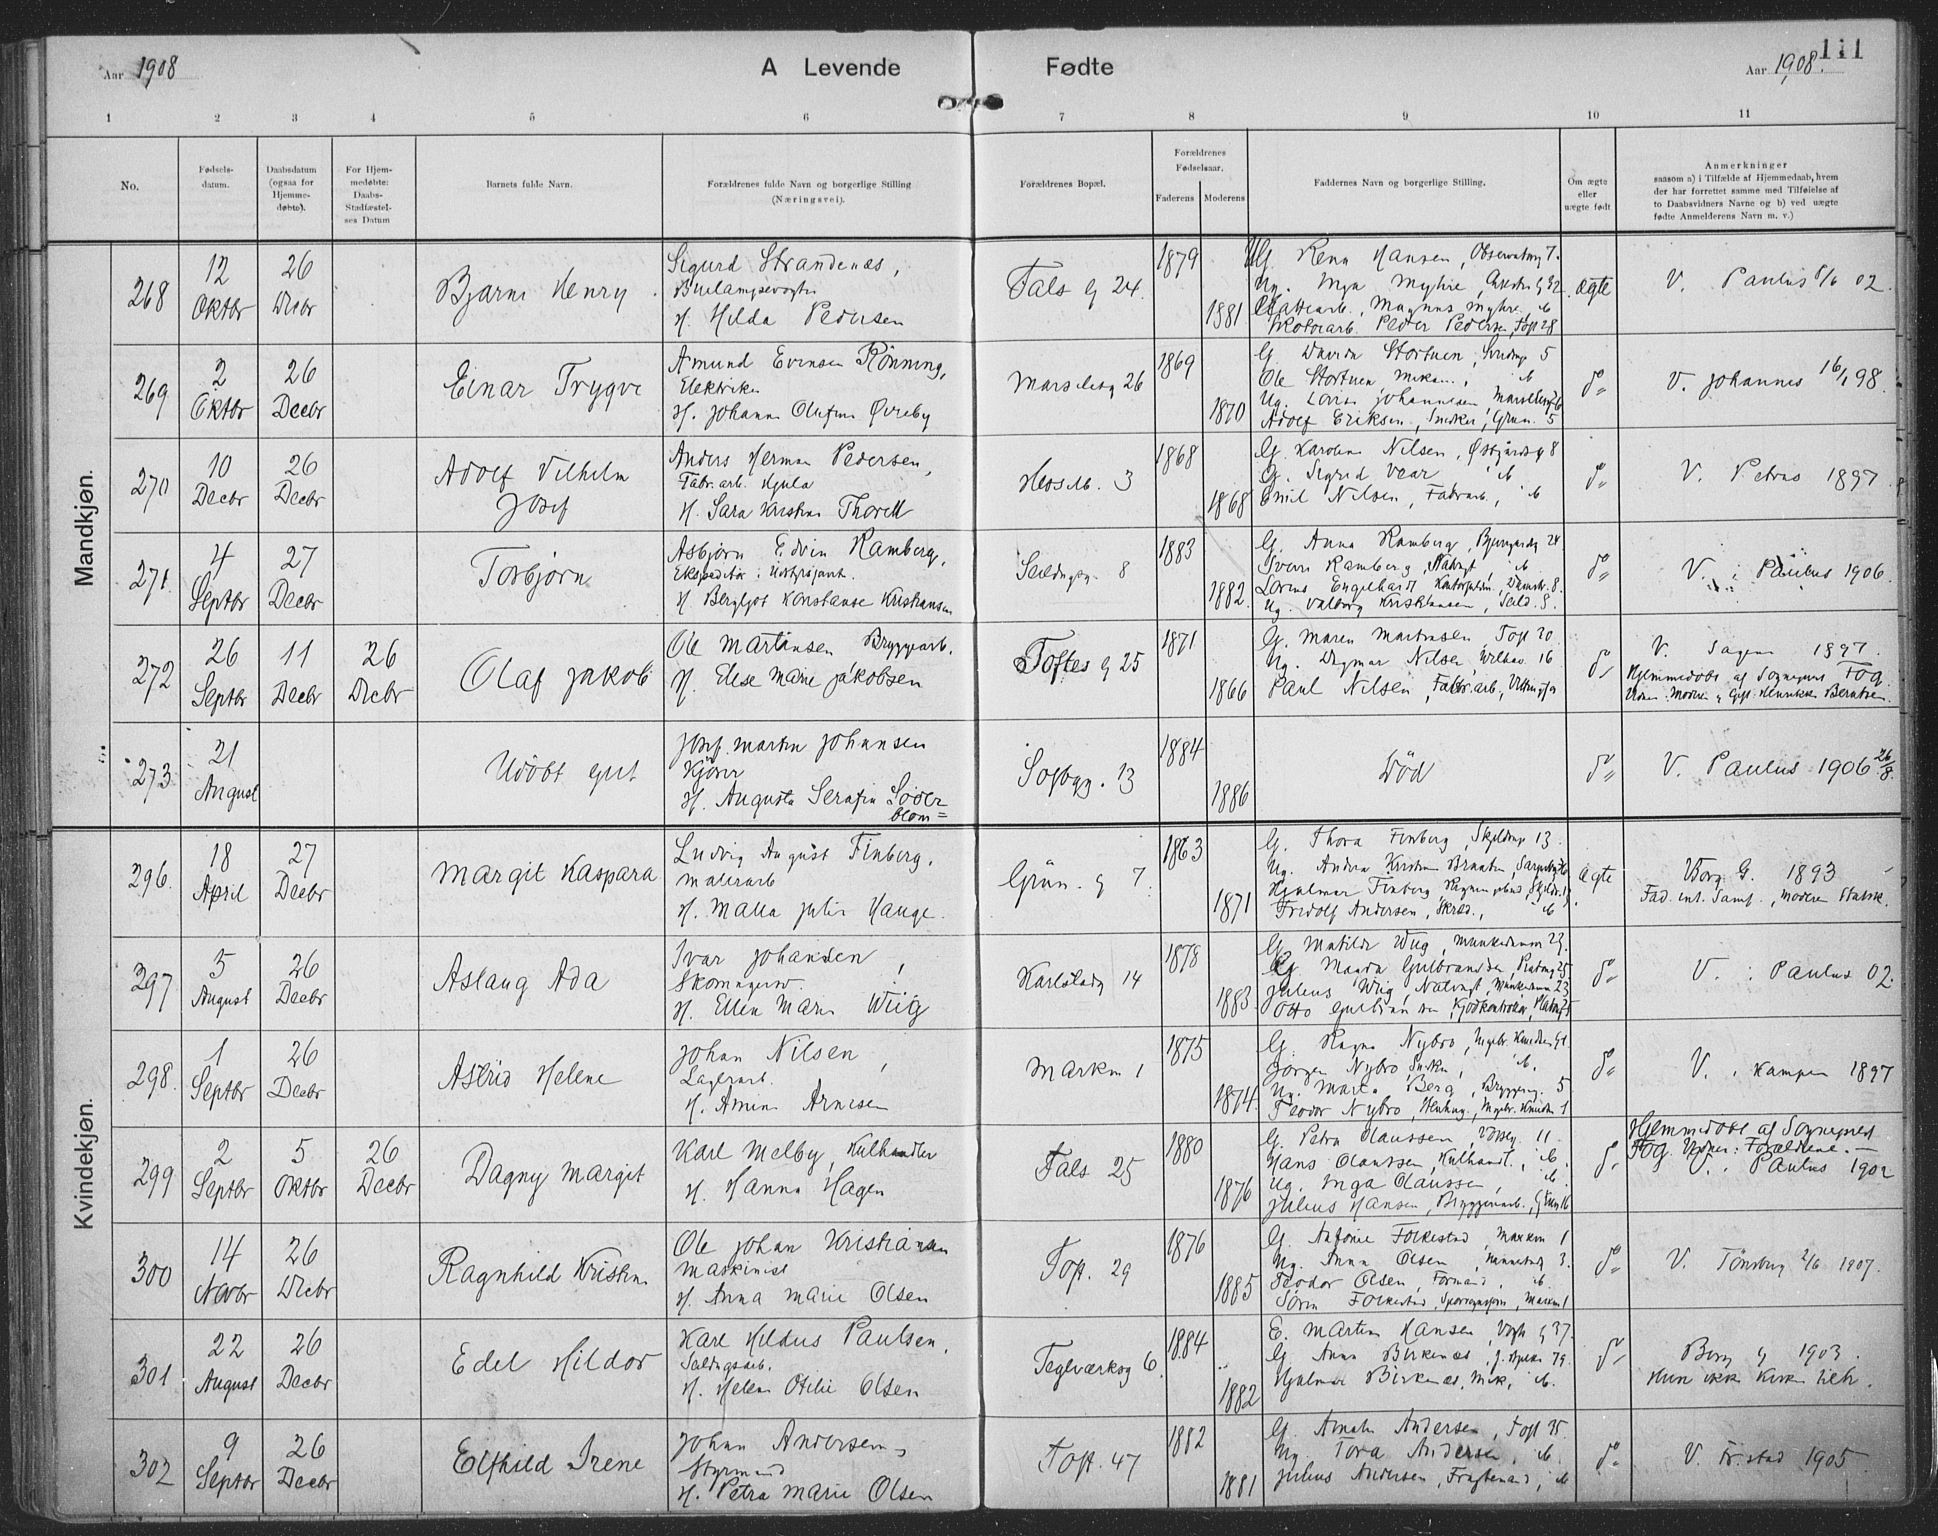 Aar 1908
A Levende Fødte
Aar 1908.
111
1 2 3 4 5 6 7 8 9 10 11
No.
Fødsels-
datum.
Daabsdatum
(ogsaa for
Hjemme-
døbte).
For Hjem-
medøbte:
Daabs-
Stadfæstel-
ses Datum
Barnets fulde Navn.
Forældrenes fulde Navn og borgerlige Stilling
(Næringsvei).
Forældrenes Bopæl.
Forældrenes
Fødselsaar.
Faderens Moderens
Faddernes Navn og borgerlige Stilling.
Om ægte
eller
uægte født
Anmerkninger
saasom a) i Tilfælde af Hjemmedaab, hvem
der har forrettet samme med Tilføielse af
to Daabsvidners Navne og b) ved uægte
fødte Anmelderens Navn m. v.)
Mandkjøn.
268
12
Oktbr
26
Decbr
Bjarne Henry
Sigurd Strandenæs,
Buelampevogter
H. Hilda Pedersen
Fals g 24.
1879
1881
Hansen, Observatorieg 7.
Myhre
Magnus Myhre, ib
Peder Pedersen, Toft 28
ægte
V. Paulus 02
269
2
Oktbr
26
Decbr
Einar Trygve
Amund Evensen Rønning,
Elektriker
H. Johanne Olufine Øvreby
Marselisg 26
1869
1870
G. Davida Stortuen, 5
Ole Stortuen, Mekan., ib
Ug. Lovise Johannesen Marselisg 26
Adolf Eriksen, Snedker, Grün. 5
do
V. Johannes 16/1 98.
270
10
Decbr
26
Decbr
Adolf Vilhelm
Josef
Anders Herman Pedersen,
Fabr.arb. Hjula
H. Sara Kristine Thorell
3
1868
1868
G. Karoline Nilsen, 8
G. Sigrid ib
Emil Nilsen, Fabrarb., ib
do
V. Petrus 1897
271.
4
Septbr
27
Decbr
Torbjørn
Asbjørn Edvin Ramberg,
Ekspeditør i
H. Bergljot Konstanse Kristiansen
Seildugsg. 8
1883
1882.
G. Anna Ramberg, 24
Sverre Ramberg, ib
Engelhardt 8.
Ug. Valborg Kristiansen, Seild. 8.
do
V. : Paulus 1906.
272
26
Septbr
11
Decbr
26
Decbr
Olaf Jakob
Ole Martinsen Bryggearb.
H. Else Marie Jakobsen
Toftes g 25
1871
1866
G. Maren Martinsen, Toft 20
Ug. Dagmar Nilsen, 16
Paul Nilsen, Fabr.arb,
do
V. Sagene 1897.
Hjemmedøbt af Sognepres Fog.
Vidner: Moderen g Gift. Henrikke Berntsen
273
21
August
Udøbt gut
Josef Martin Johansen
Kjører
H. Augusta Serafia Søder-
blom=
Sofbgg. 13
1884
1886
Død
do
V. Paulus 1906 26/8.
Kvindekjøn.
296.
18
April
27
Decbr
Margit Kaspara
Ludvig August Finberg,
Malerarb
H. Malla Julie Hauge.
Grün. g 7.
1863
1871
G. Thora Finberg, 13.
Ug. Andrea Kristine Braaten,
Hjalmar Finberg,
Fridolf Andersen, Skræd., ib
ægte
Vorg G. 1893
Fad. int. Samf., Moderen Statsk.
297
5
August
26
Decbr
Aslaug Ada
Ivar Johansen,
Skomagersv.
H. Ellen Marie Wiig
Karlstadg 14
1878
1883
G. Matilde Wiig, Munkedamm 23.
Magda Gulbrandsen, 25
Julius Wiig, Natvagt, Munkedamm 23
Otto Gulbrandsen, Kjødkontrolør,
do
V. : Paulus 02.
298.
1
Septbr
26
Decbr
Astrid Helene
Johan Nilsen,
Lagerarb.
H. Amina Arnesen
Markm 1
1875
1874.
G. Ragna Nybro,
Jørgen Nybro Snedker, ib.
Ug. Marta Berg, 5
Teodor Nybro,
do
V. . Kampen 1897
299
2
Septbr
5
Oktbr
26
Decbr
Dagny Margit
Karl Melby, Kulhandler
H. Hanna Hagen
Fals 25
1880
1876
G. Petra Olaussen, 11.
Hans Olaussen, Kulhandl., ib.
Ug. Inga Olaussen, ib.
Julius Hansen, Bryggeriarb.,
do
Hjemmedøbt af Sognepres
Fog. Vidner: Forældrene. —
V. . Paulus 1902
300
14
Novbr
26
Decbr
Ragnhild Kristine
Ole Johan Kristiansen
Maskinist
H. Anna Marie Olsen
Toft. 29
1876
1885
G. Antonie Folkestad, Markm 1
Ug. Anna Olsen, 3.
Teodor Olsen, Formand, ib.
Søren Folkestad, Markm 1
do
V. Tønsberg 1907.
301
22
August
26
Decbr
Edel Hildor
Karl Hildus Paulsen,
Seildugsarb.
H. Helene Otilie Olsen
Teglværksg 6.
1884
1882
E. Martine Hansen, Vogts g 37.
G. Anna Birkenæs,
Hjalmar Birkenæs, Mek, ib.
do
Borg g 1903.
Hun ikke Kirken
302
9
Septbr
26
Decbr
Elfhild Irene
Johan Andersen,
Styrmand
H. Petra Marie Olsen
Toft. 47
1882
1881
G. Amalie Andersen, Toft 35
Ug. Tora Andersen, ib
Julius Andersen, ib
do
V. Fr.stad 1905